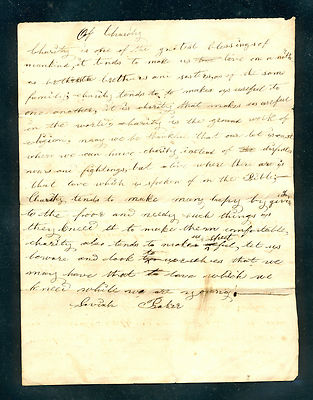 Of Charity
Charity is one of the gratist blessings of
mankind, it tends to make us love on a nother
as brothers are sisters of the same
family; charity tends to make us useful to
one another, it is charity that makes us useful
in the world, charity is the ground work of
religion, may we be thankful that our lot is cast
where we can have charity instead of
wars and fightings, but a live where there is
that love which is spoken of in the Bible
Charity tends to make many happy by giving
to the poor and needy such things as
they need it to make them comfortable,
charity also tends to make us useful, let us
beware and look to ourselves that we
may have that love which we
need while we are young!
Baker